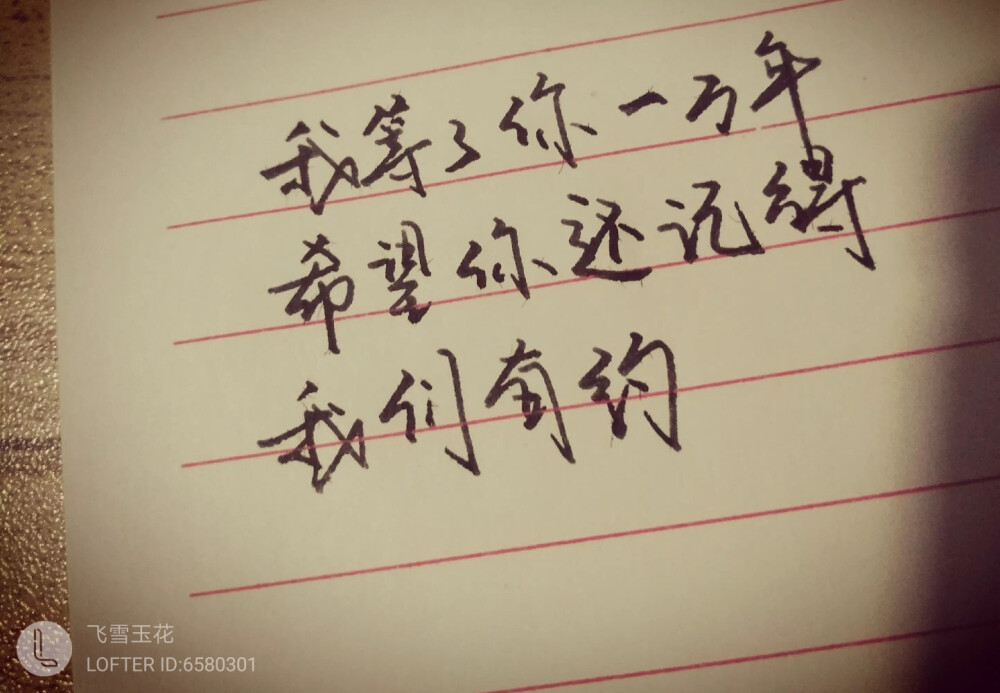 我等了你一万年
希望你还记得
我们有约
飞雪玉花
LOFTER ID:6580301